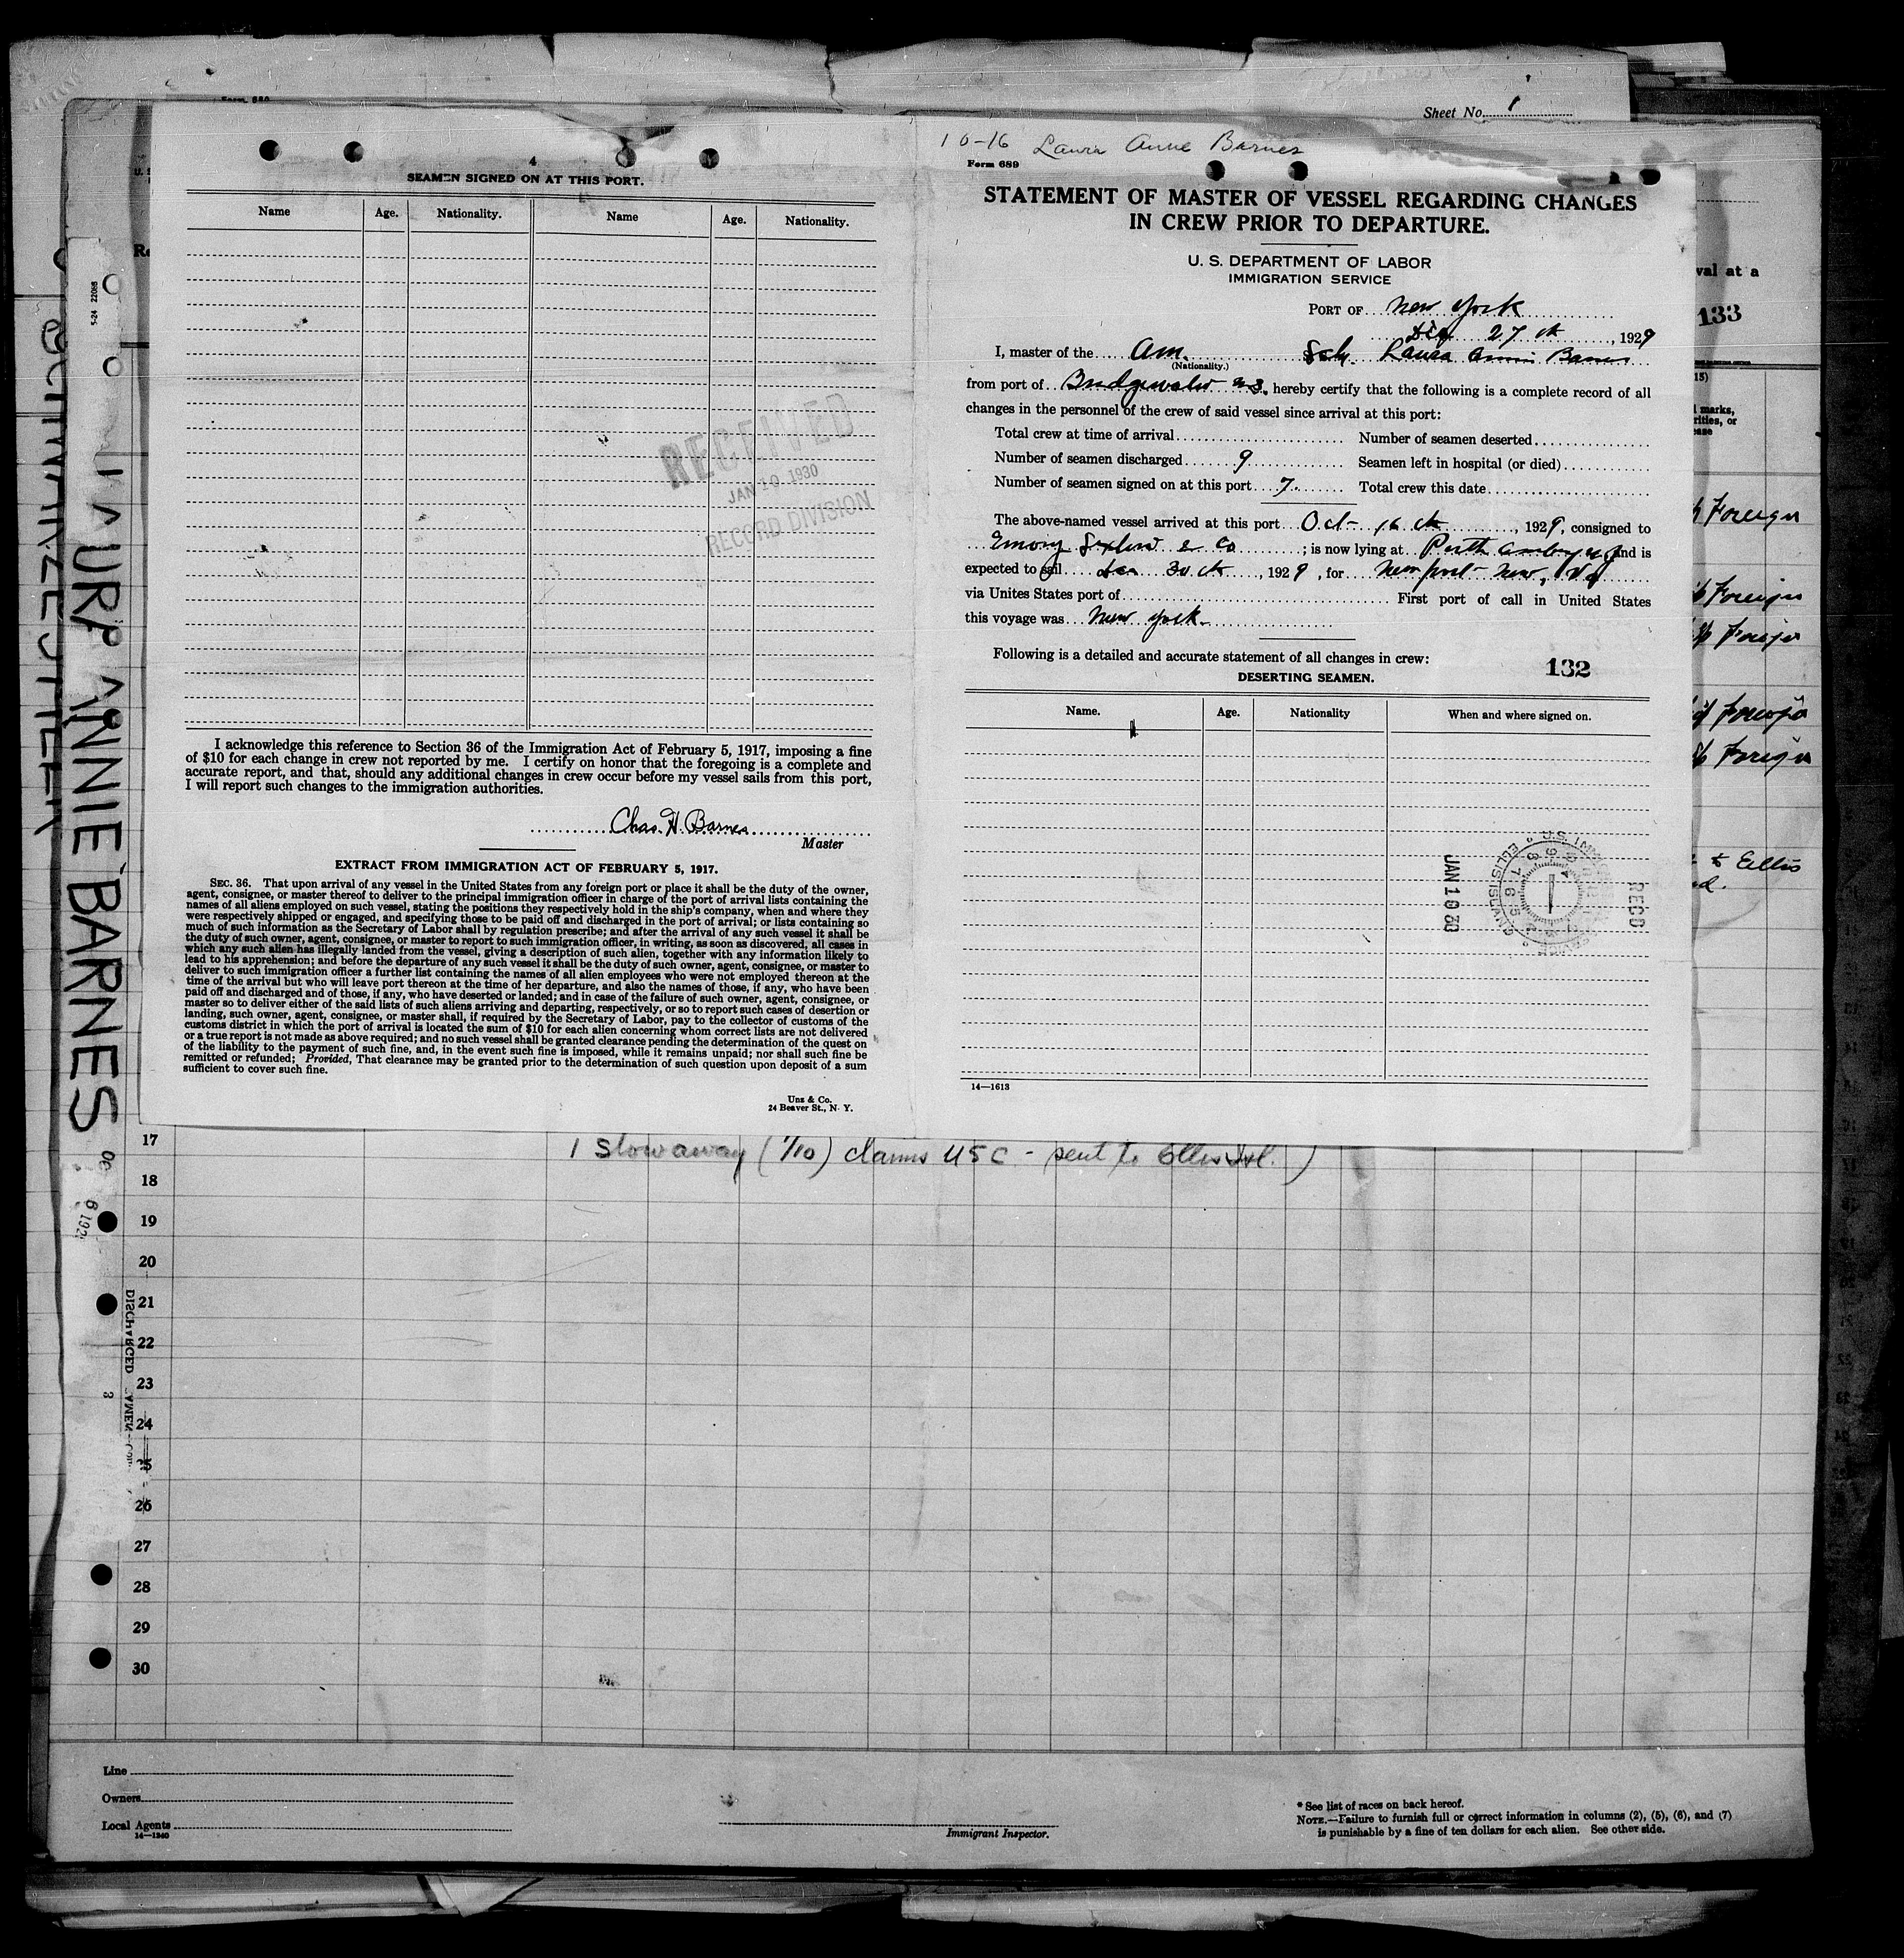 Sheet No. 1
4
SEAMEN SIGNED ON AT THIS PORT.
Name Age. Nationality. Name Age. Nationality.
RECEIVED
JAN 10 1930
RECORD DIVISION
I acknowledge this reference to Section 36 of the Immigration Act of February 5, 1917, imposing a fine
of $10 for each change in crew not reported by me. I certify on honor that the foregoing is a complete and
accurate report, and that, should any additional changes in crew occur before my vessel sails from this port,
I will report such changes to the immigration authorities.
Chas. H. Barnes
Master
EXTRACT FROM IMMIGRATION ACT OF FEBRUARY 5, 1917.
SEC. 36. That upon arrival of any vessel in the United States from any foreign port or place it shall be the duty of the owner,
agent, consignee, or master thereof to deliver to the principal immigration officer in charge of the port of arrival lists containing the
names of all aliens employed on such vessel, stating the positions they respectively hold in the ship's company, when and where they
were respectively shipped or engaged, and specifying those to be paid off and discharged in the port of arrival; or lists containing so
much of such information as the Secretary of Labor shall by regulation prescribe; and after the arrival of any such vessel it shall be
the duty of such owner, agent, consignee, or master to report to such immigration officer, in writing, as soon as discovered, all cases in
which any such alien has illegally landed from the vessel, giving a description of such alien, together with any information likely to
lead to his apprehension; and before the departure of any such vessel it shall be the duty of such owner, agent, consignee, or master to
deliver to such immigration officer a further list containing the names of all alien employees who were not employed thereon at the
time of the arrival but who will leave port thereon at the time of her departure, and also the names of those, if any, who have been
paid off and discharged and of those, if any, who have deserted or landed; and in case of the failure of such owner, agent, consignee, or
master so to deliver either of the said lists of such aliens arriving and departing, respectively, or so to report such cases of desertion or
landing, such owner, agent, consignee, or master shall, if required by the Secretary of Labor, pay to the collector of customs of the
customs district in which the port of arrival is located the sum of $10 for each alien concerning whom correct lists are not delivered
or a true report is not made as above required; and no such vessel shall be granted clearance pending the determination of the quest on
of the liability to the payment of such fine, and, in the event such fine is imposed, while it remains unpaid; nor shall such fine be
remitted or refunded; Provided, That clearance may be granted prior to the determination of such question upon deposit of a sum
sufficient to cover such fine.
Unz & Co.
24 Beaver St., N. Y.
10-16 Laura Anne Barnes
Form 689
STATEMENT OF MASTER OF VESSEL REGARDING CHANGES
IN CREW PRIOR TO DEPARTURE.
U. S. DEPARTMENT OF LABOR
IMMIGRATION SERVICE
PORT OF New York
27 th, 1929
I, master of the Am. Sch. Laura Annie Barnes
(Nationality.)
from port of Bridgewater N.S., hereby certify that the following is a complete record of all
changes in the personnel of the crew of said vessel since arrival at this port:
Total crew at time of arrival Number of seamen deserted
Number of seamen discharged 9 Seamen left in hospital (or died)
Number of seamen signed on at this port 7 Total crew this date
The above-named vessel arrived at this port Oct 16 th, 1929, consigned to
Emory Sexton & Co; is now lying at Perth Amboy N J and is
expected to sail 30 th, 1929, for Newport News, Va
via Unites States port of First port of call in United States
this voyage was New York
Following is a detailed and accurate statement of all changes in crew:
132
DESERTING SEAMEN.
Name. Age. Nationality When and where signed on.
JAN 10 30
REC'D
14—1613
val at a
133
15)
marks,
rities, or
ease
Foreign
Foreign
Foreign
Foreign
Foreign
to Ellis
LAURA ANNIE BARNES
5-24 22088
DISCHARGED
1 Stowaway (1/10) claims USC - sent to Ellis Isl.)
17
18
19
20
21
22
23
24
25
26
27
28
29
30
Line
Owners
Local Agents
14—1240
Immigrant Inspector.
* See list of races on back hereof.
NOTE.—Failure to furnish full or correct information in columns (2), (5), (6), and (7)
is punishable by a fine of ten dollars for each alien. See other side.